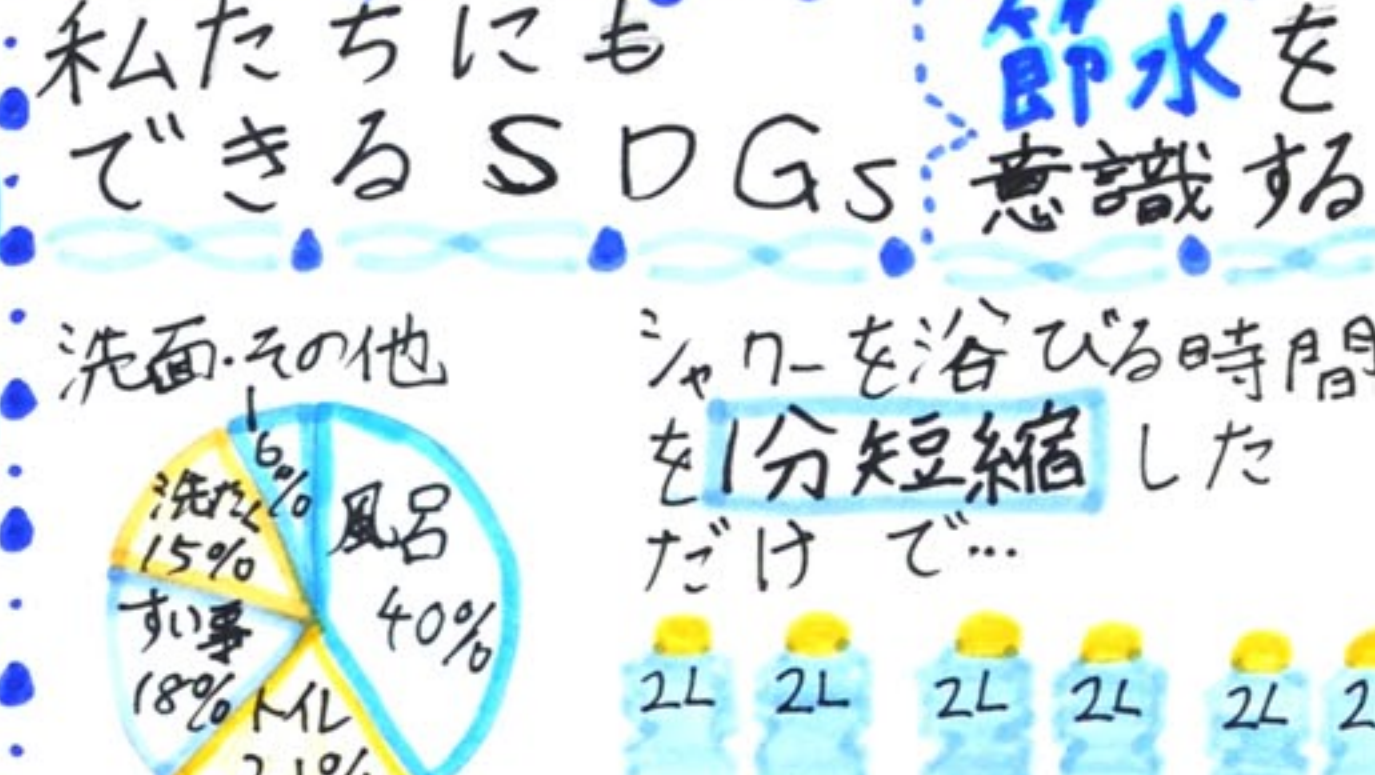 私たちにも
できるSDGs
節水を
意識する
洗面・その他
6%
風呂
40%
洗たく
15%
すい事
18%
トイレ
21%
シャワーを浴びる時間
を1分短縮した
だけで…
2L 2L 2L 2L 2L